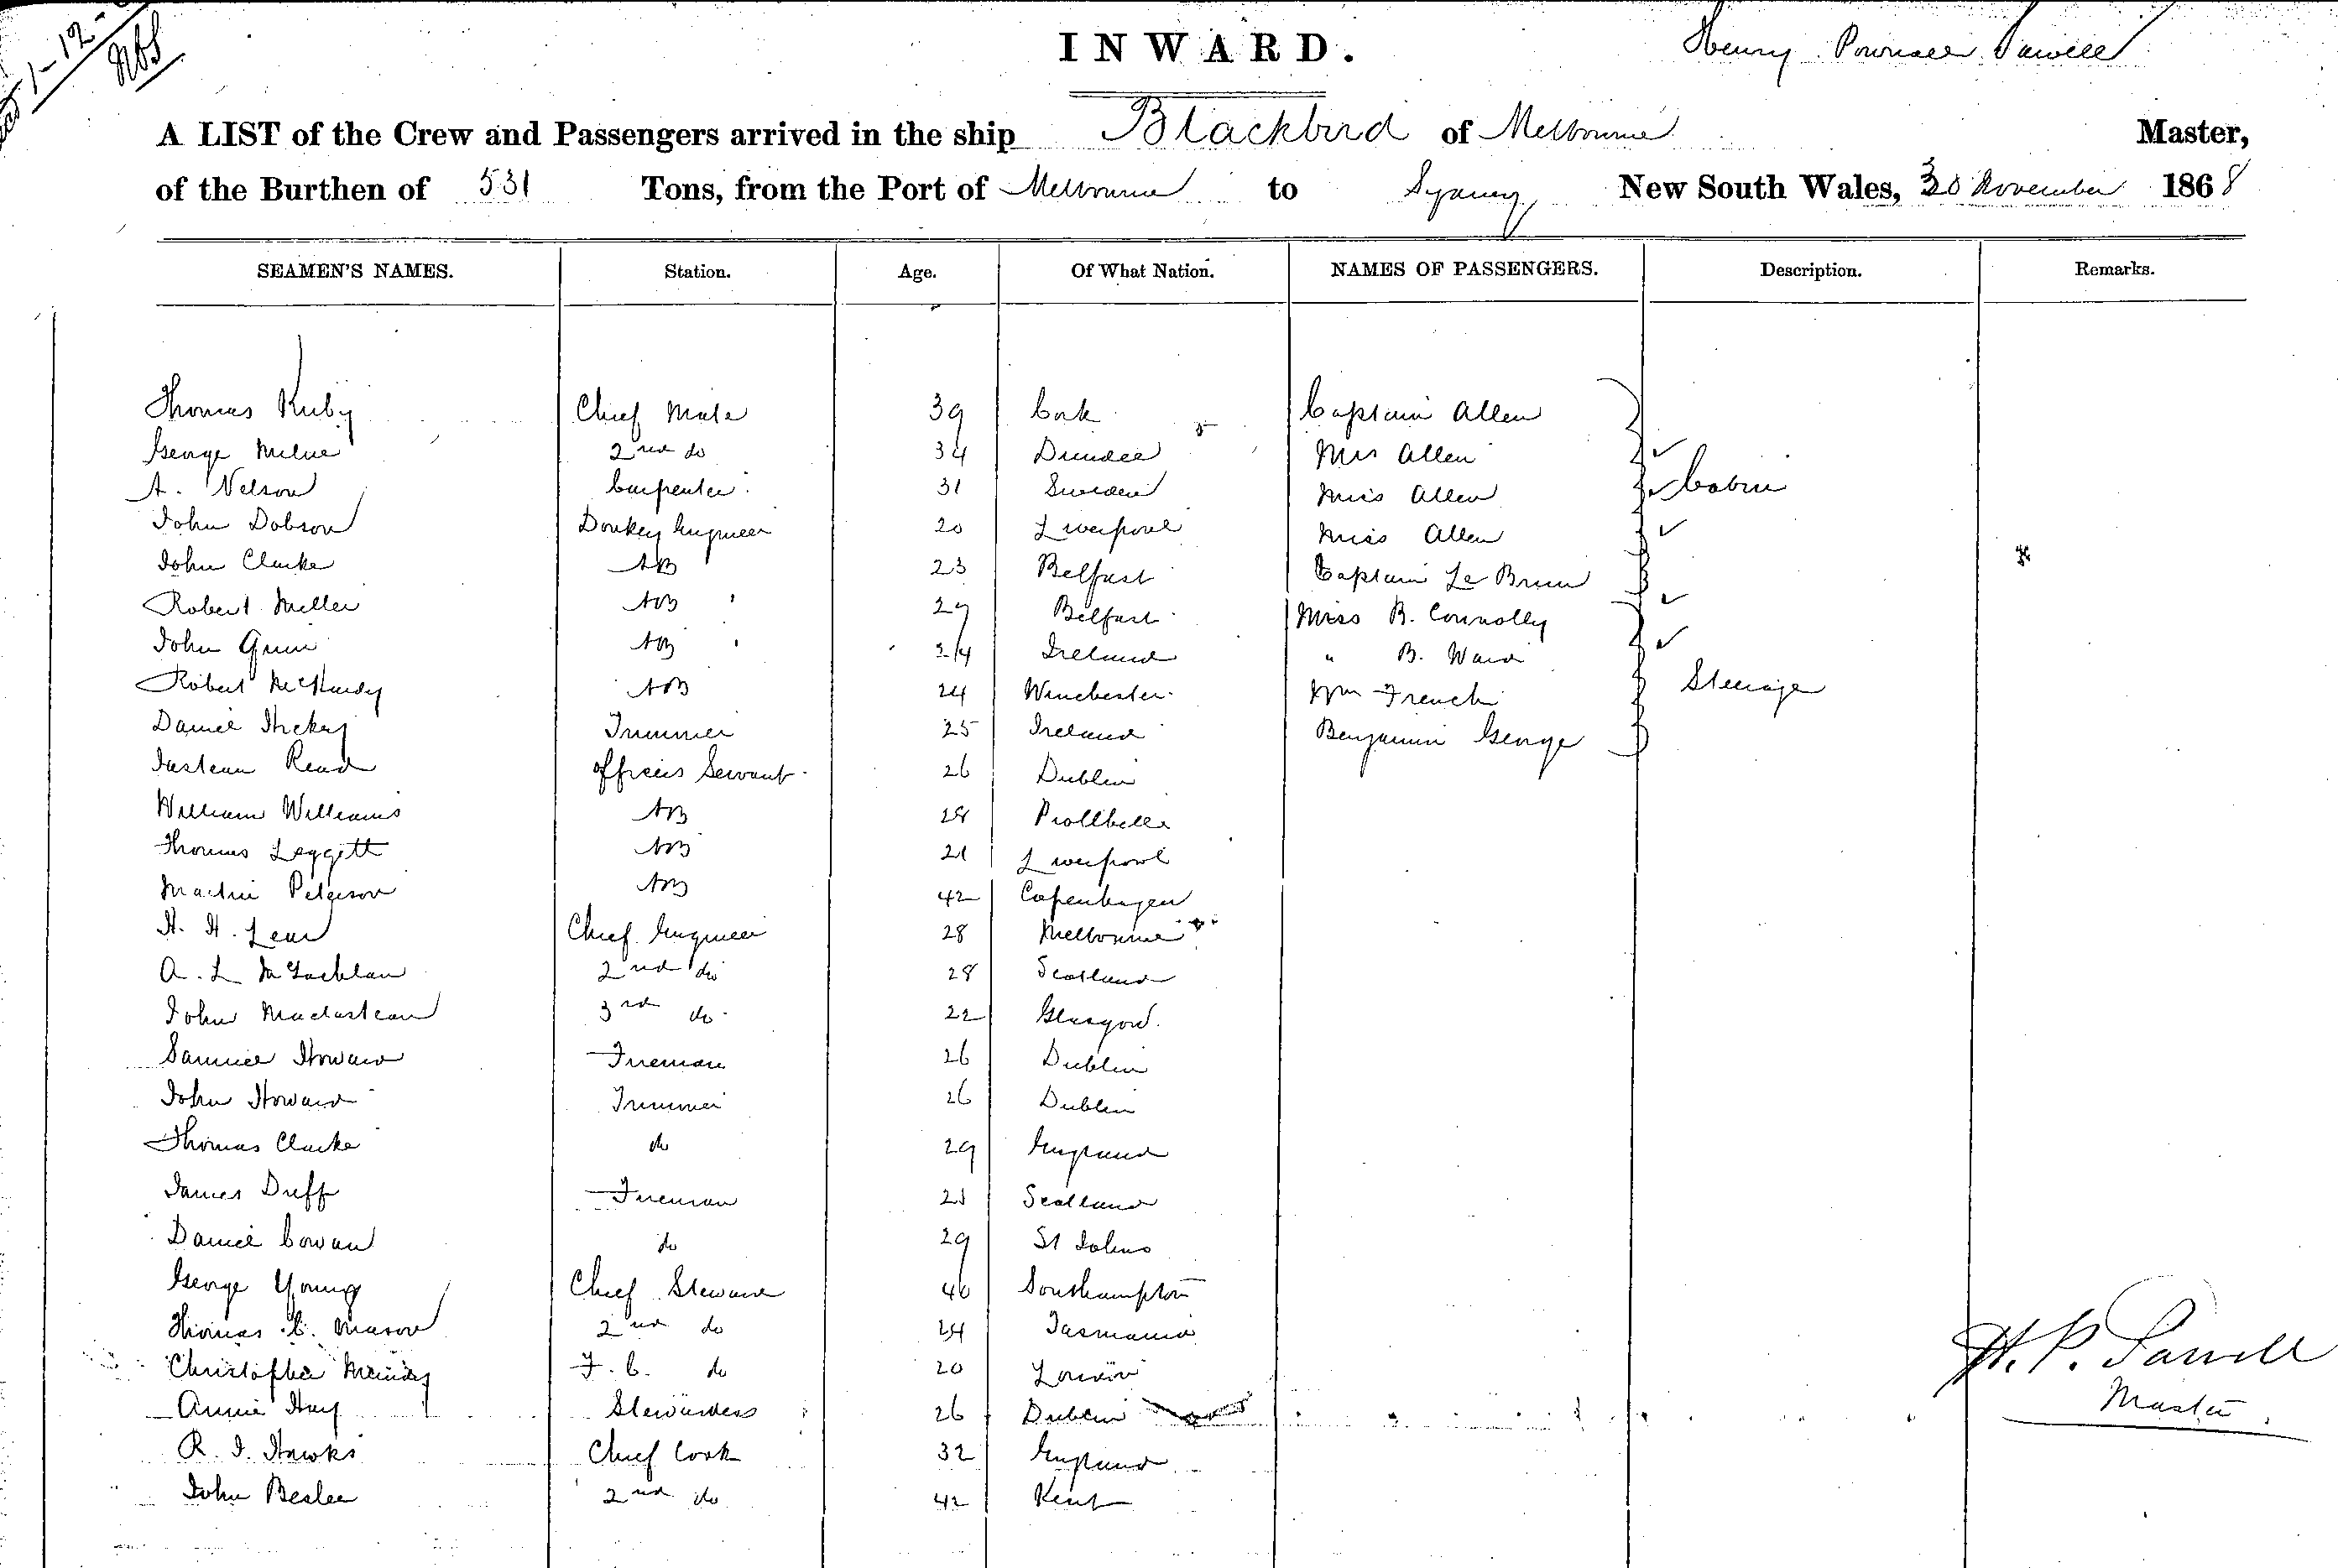 1-12-
INWARD.
Henry Pownall Sawell
A LIST of the Crew and Passengers arrived in the ship Blackbird of Melbourne Master,
of the Burthen of 531 Tons, from the Port of Melbourne to Sydney New South Wales, 30 November 1868
SEAMEN'S NAMES. Station. Age. Of What Nation. NAMES OF PASSENGERS. Description. Remarks.
Thomas Kirby Chief Mate 39 Cork Captain Allen
George Milne 2nd do 34 Dundee Mrs Allen
A. Nelson Carpenter 31 Sweden Miss Allen Cabin
John Dobson Donkey Engineer 20 Liverpool Miss Allen
John Clarke AB 23 Belfast Captain Le Brun
Robert Miller AB 29 Belfast Miss B. Connolly
John Gunn AB 34 Ireland " B. Ward
Robert McHardy AB 24 Winchester Wm French Steerage
Daniel Hickey Trimmer 25 Ireland Benjamin George
Read officers Servant 26 Dublin
William Williams AB 28
Thomas Leggett AB 21 Liverpool
Martin Peterson AB 42 Copenhagen
H. H. Lear Chief Engineer 28 Melbourne
A. L McLachlan 2nd do 28 Scotland
John 3rd do 22 Glasgow
Samuel Howard Fireman 26 Dublin
John Howard Trimmer 26 Dublin
Thomas Clarke do 29 England
James Duff Fireman 21 Scotland
Daniel Cowan do 29 St Johns
George Young Chief Steward 40 Southampton
Thomas C. Mason 2nd do 24 Tasmania
Christopher F. C. do 20 London
Annie Hay Stewardess 26 Dublin
R. J. Hawks Chief Cook 32 England
John Beslee 2nd do 42 Kent
H. P. Sawell
Master